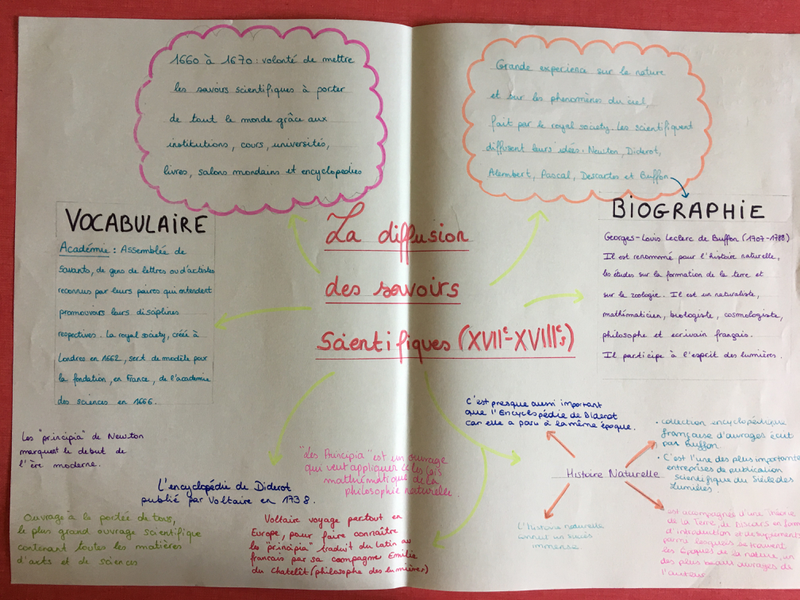 1660 à 1670 : volonté de mettre
les savoirs scientifiques à porter
de tout le monde grâce aux
institutions, cours, universités,
livres, salons mondains et encyclopedies
Grande experience sur la nature
et sur les phénomèns du ciel,
fait par le royal society. Les scientifiques
diffusent leurs idées. Newton, Diderot,
Alembert, Pascal, Descartes et Buffon
VOCABULAIRE
Académie : Assemblée de
savants, de gens de lettres ou d'artistes
reconnus par leurs paires qui entendent
promouvoir leurs disciplines
respectives. La royal society, créé à
Londres en 1662, sert de modèle pour
la fondation, en France, de l'académie
des sciences en 1666.
La diffusion
des savoirs
scientifiques (XVIIe-XVIIIes)
BIOGRAPHIE
Georges-Louis Leclerc de Buffon (1707-1788)
Il est renommé pour l'histoire naturelle,
les études sur la formation de la terre et
sur la zoologie. Il est un naturaliste,
mathématicien, biologiste, cosmologiste,
philosophe et ecrivain français.
Il participe à l'esprit des lumières.
Les "principia" de Newton
marquent le debut de
l'ère moderne.
L'encyclopédie de Diderot
publié par Voltaire en 1738.
"Les Principia" est un ouvrage
qui veut appliquer les lois
mathématique de la
philosophie naturelle.
Ouvrage à la portée de tous,
le plus grand ouvrage scientifique
contenant toutes les matières
d'arts et de sciences
Voltaire voyage partout en
Europe, pour faire connaître
les "principia" traduit du latin au
francais par sa compagne Emilie
du Chatelêt (philosophe des lumières)
C'est presque aussi important
que l'Encyclopédie de Diderot
car elle a paru à la même époque.
Histoire Naturelle
• collection encyclopédique
française d'ouvrages écrit
par Buffon.
• C'est l'une des plus importantes
entreprises de publication
scientifique du Siècle des
Lumières
L'Histoire naturelle
connut un succès
immense
est accompagnée d'une Théorie
de la Terre, de Discours en forme
d'introduction et de suppléments
parmi lesquels se trouvent
les Epoques de la nature, un
des plus beaux ouvrages de
l'auteur